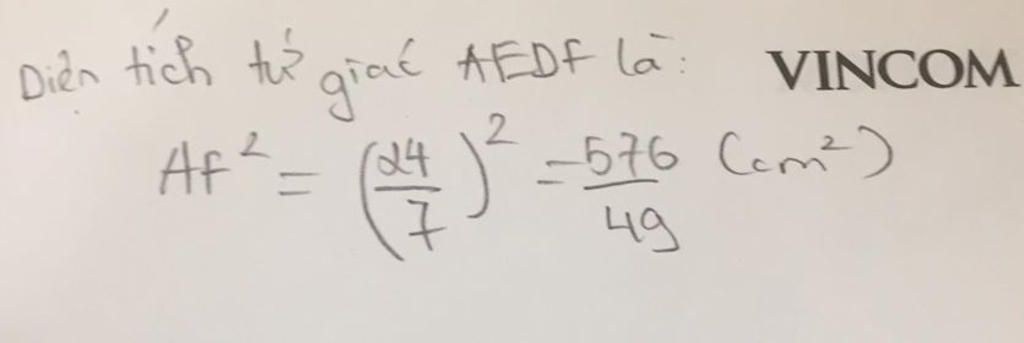 Diện tích tứ giác AEDF là: VINCOM
AF² = (24/7)² = 576/49 (cm²)